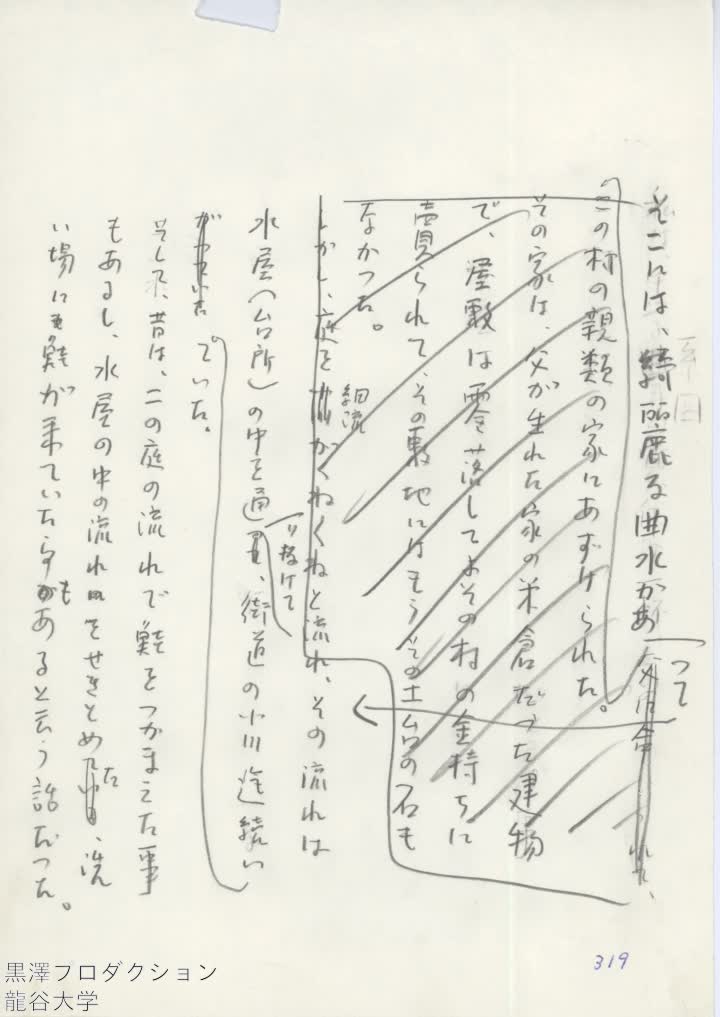 そこには、綺麗な曲水があって
この村の親類の家にあずけられた。
その家は、父が生れた家の米倉だった建物
で、屋敷は零落してよその村の金持ちに
賣られて、その敷地にはもうその土台の石も
なかった。
しかし、庭を細流がくねくねと流れ、その流れは
水屋(台所)の中を通り抜けて、街道の小川迄続い
ていた。
そして、昔は、この庭の流れで鮭をつかまえた事
もあるし、水屋の中の流れをせきとめた、洗
い場にも鮭が来ていた事もあると云う話だった。
319
黒澤プロダクション
龍谷大学